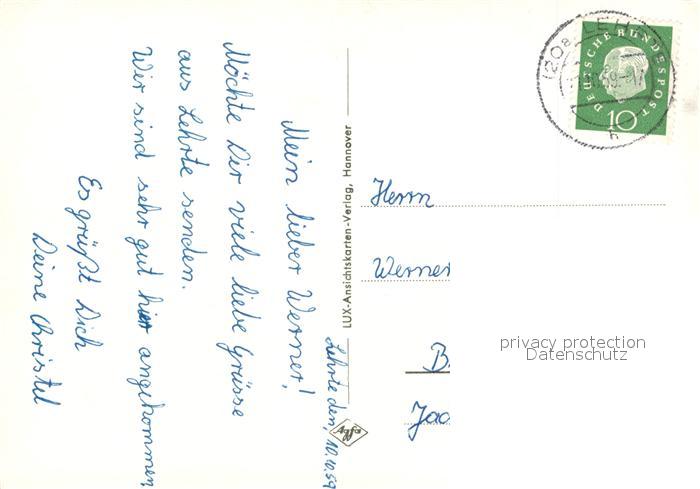 Lehrte den, 10.10.59
Mein lieber Werner!
Möchte Dir viele liebe Grüsse
aus Lehrte senden.
Wir sind sehr gut hier angekommen,
Es grüßt Dich
Deine Christel
LUX-Ansichtskarten-Verlag, Hannover
Agfa
DEUTSCHE BUNDESPOST
10
(20a) LEH
h
Herrn
Werner
B.
Jac
privacy protection
Datenschutz